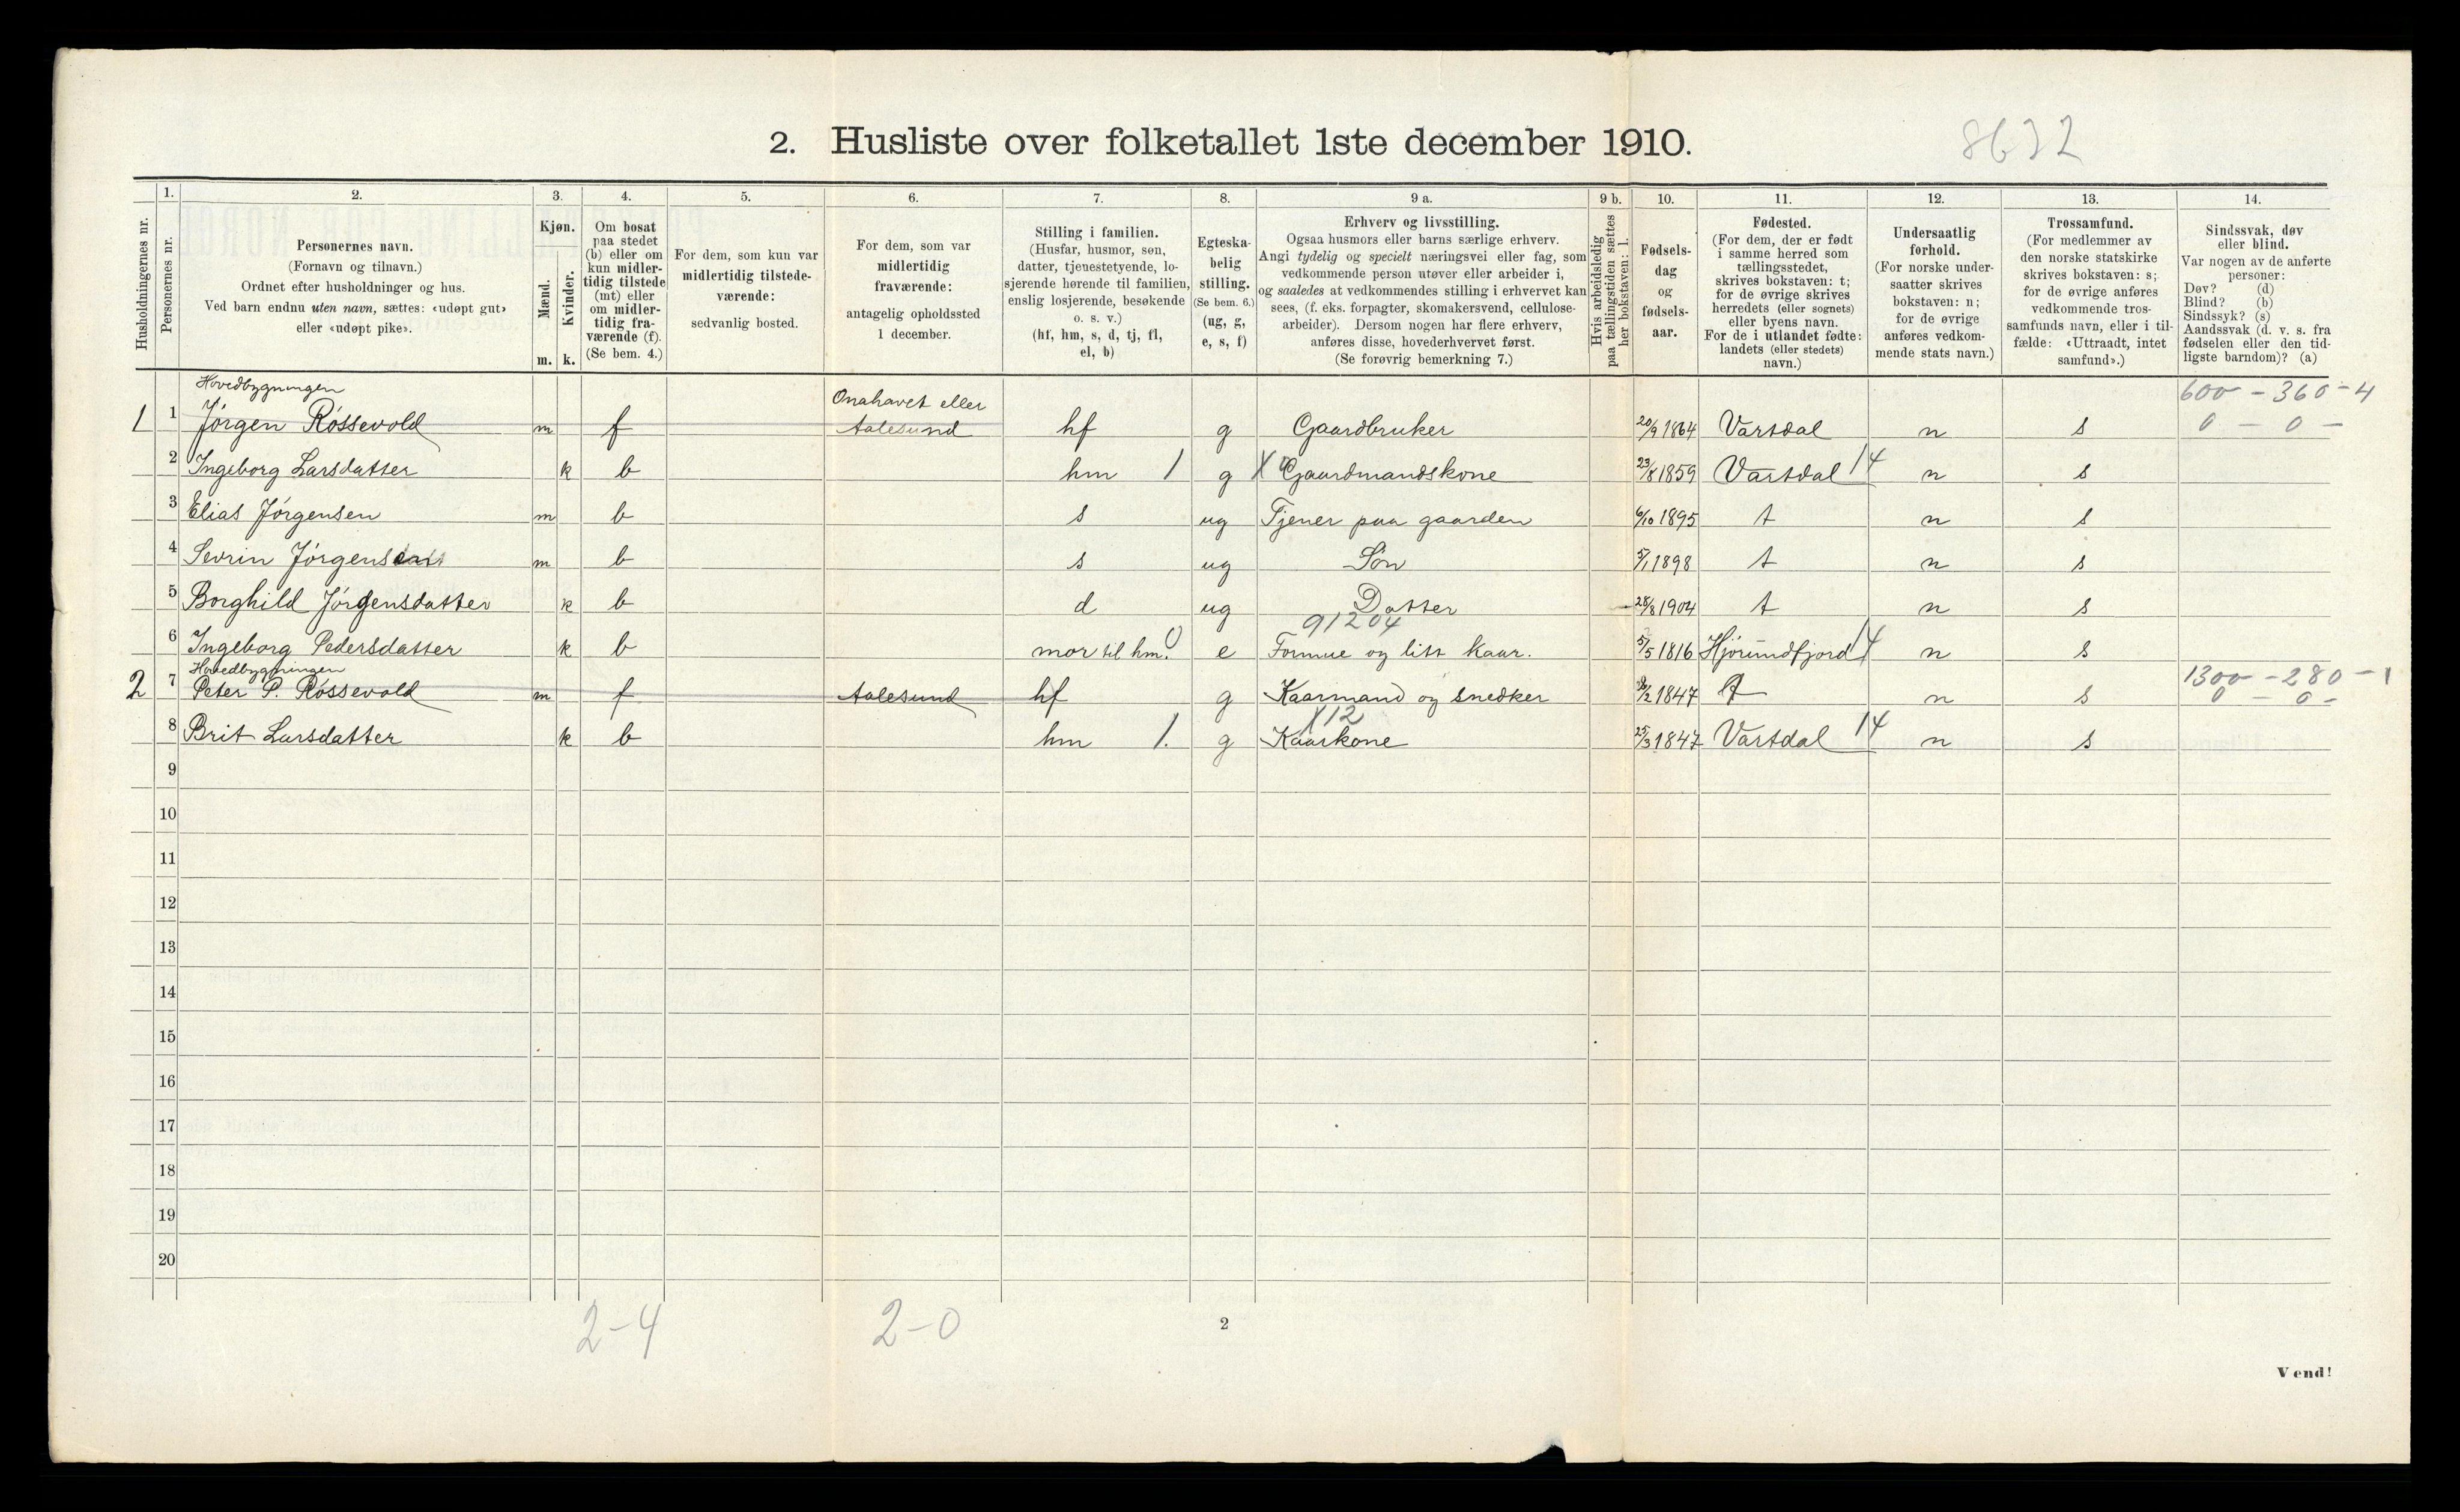 2. Husliste over folketallet 1ste december 1910.
8632
Husholdningernes nr.
1.
Personernes nr.
2.
Personernes navn.
(Fornavn og tilnavn.)
Ordnet efter husholdninger og hus.
Ved barn endnu uten navn, sættes: «udøpt gut»
eller «udøpt pike».
3.
Kjøn.
Mænd.
Kvinder.
m. k.
4.
Om bosat
paa stedet
(b) eller om
kun midler-
tidig tilstede
(mt) eller
om midler-
tidig fra-
værende (f).
(Se bem. 4.)
5.
For dem, som kun var
midlertidig tilstede-
værende:
sedvanlig bosted.
6.
For dem, som var
midlertidig
fraværende:
antagelig opholdssted
1 december.
7.
Stilling i familien.
(Husfar, husmor, søn,
datter, tjenestetyende, lo-
sjerende hørende til familien,
enslig losjerende, besøkende
o. s. v.)
(hf, hm, s, d, tj, fl,
el, b)
8.
Egteska-
belig
stilling.
(Se bem. 6.)
(ug, g,
e, s, f)
9 a.
Erhverv og livsstilling.
Ogsaa husmors eller barns særlige erhverv.
Angi tydelig og specielt næringsvei eller fag, som
vedkommende person utøver eller arbeider i,
og saaledes at vedkommendes stilling i erhvervet kan
sees, (f. eks. forpagter, skomakersvend, cellulose-
arbeider). Dersom nogen har flere erhverv,
anføres disse, hovederhvervet først.
(Se forøvrig bemerkning 7.)
9 b.
Hvis arbeidsledig
paa tællingstiden sættes
her bokstaven: l.
10.
Fødsels-
dag
og
fødsels-
aar.
11.
Fødested.
(For dem, der er født
i samme herred som
tællingsstedet,
skrives bokstaven: t;
for de øvrige skrives
herredets (eller sognets)
eller byens navn.
For de i utlandet fødte:
landets (eller stedets)
navn.)
12.
Undersaatlig
forhold.
(For norske under-
saatter skrives
bokstaven: n;
for de øvrige
anføres vedkom-
mende stats navn.)
13.
Trossamfund.
(For medlemmer av
den norske statskirke
skrives bokstaven: s;
for de øvrige anføres
vedkommende tros-
samfunds navn, eller i til-
fælde: «Uttraadt, intet
samfund».)
14.
Sindssvak, døv
eller blind.
Var nogen av de anførte
personer:
Døv? (d)
Blind? (b)
Sindssyk? (s)
Aandssvak (d. v. s. fra
fødselen eller den tid-
ligste barndom)? (a)
Hovedbygningen Onahavet eller 600 - 360 - 4
1 1 Jörgen Rössevold m f Aalesund hf g Gaardbruker 20/9 1864 Vartdal n s 0 - 0 -
2 Ingeborg Larsdatter k b hm 1 g X Gaardmandskone 23/8 1859 Vartdal 14 n s
3 Elias Jörgensen m b s ug Tjener paa gaarden 6/10 1895 t n s
4 Sevrin Jörgensen m b s ug Sön 5/1 1898 t n s
5 Borghild Jörgensdatter k b d ug Datter 28/8 1904 t n s
91204
6 Ingeborg Pedersdatter k b mor til hm. 0 e Formue og litt kaar. 5/5 1816 Hjörundfjord 14 n s
Hovedbygningen 1300 - 280 - 1
2 7 Peter P. Rössevold m f Aalesund hf g Kaarmand og snedker /2 1847 t n s 0 - 0 -
X12
8 Brit Larsdatter k b hm 1. g Kaarkone 25/3 1847 Vartdal 14 n s
9
10
11
12
13
14
15
16
17
18
19
20
2-4 2-0
2
Vend!